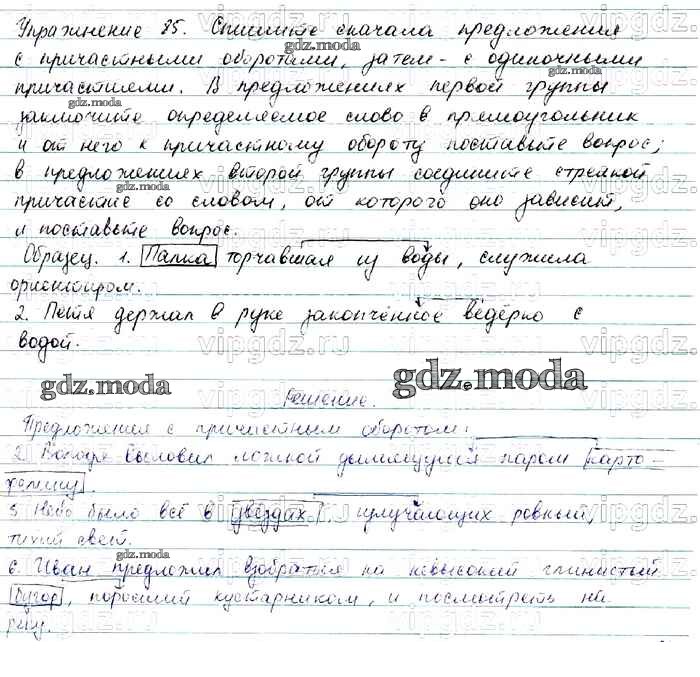 Упражнение 85. Спишите сначала предложения
с причастными оборотами, затем - с одиночными
причастиями. В предложениях первой группы
заключите определяемое слово в прямоугольник
и от него к причастному обороту поставьте вопрос;
в предложениях второй группы соедините стрелкой
причастие со словом, от которого оно зависит,
и поставьте вопрос.
Образец. 1. Палка торчавшая из воды, служила
ориентиром.
2. Петя держал в руке закопчённое ведёрко с
водой.
gdz.moda
Решение.
Предложения с причастным оборотом:
2. Володя выловил ложкой дымящуюся паром карто-
фелину.
5 Небо было всё в звёздах, излучающих ровный,
тихий свет.
6. Иван предложил взобраться на невысокий глинистый
бугор, поросший кустарником, и посмотреть на
реку.